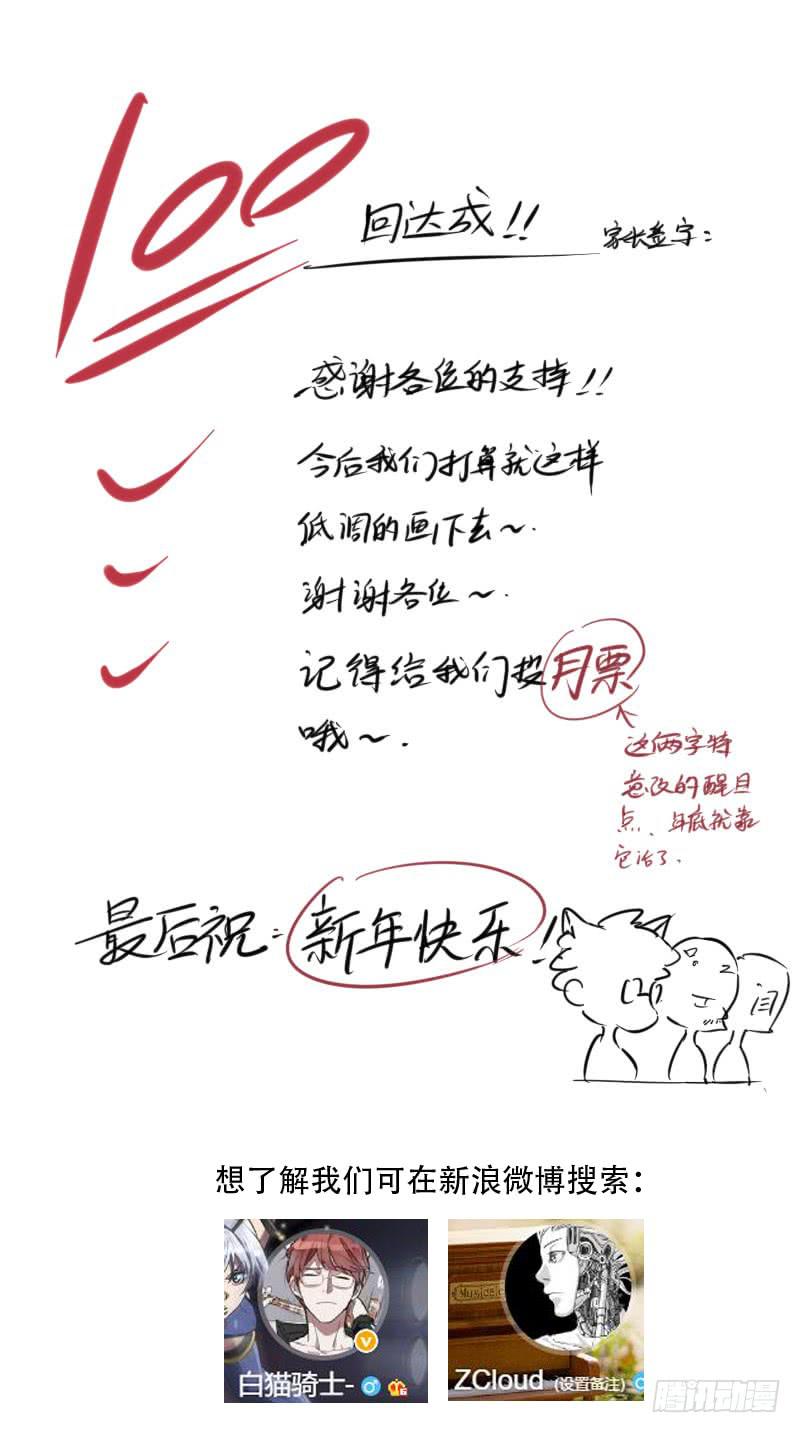 100
回达成!!
家长签字:
感谢各位的支持!!
今后我们打算就这样
低调的画下去~.
谢谢各位~.
记得给我们投月票
哦~.
这俩字特
意改的醒目
点、月底就靠
它活了.
最后祝:新年快乐!
想了解我们可在新浪微博搜索:
白猫骑士-
Musice
ZCloud (设置备注)
腾讯动漫